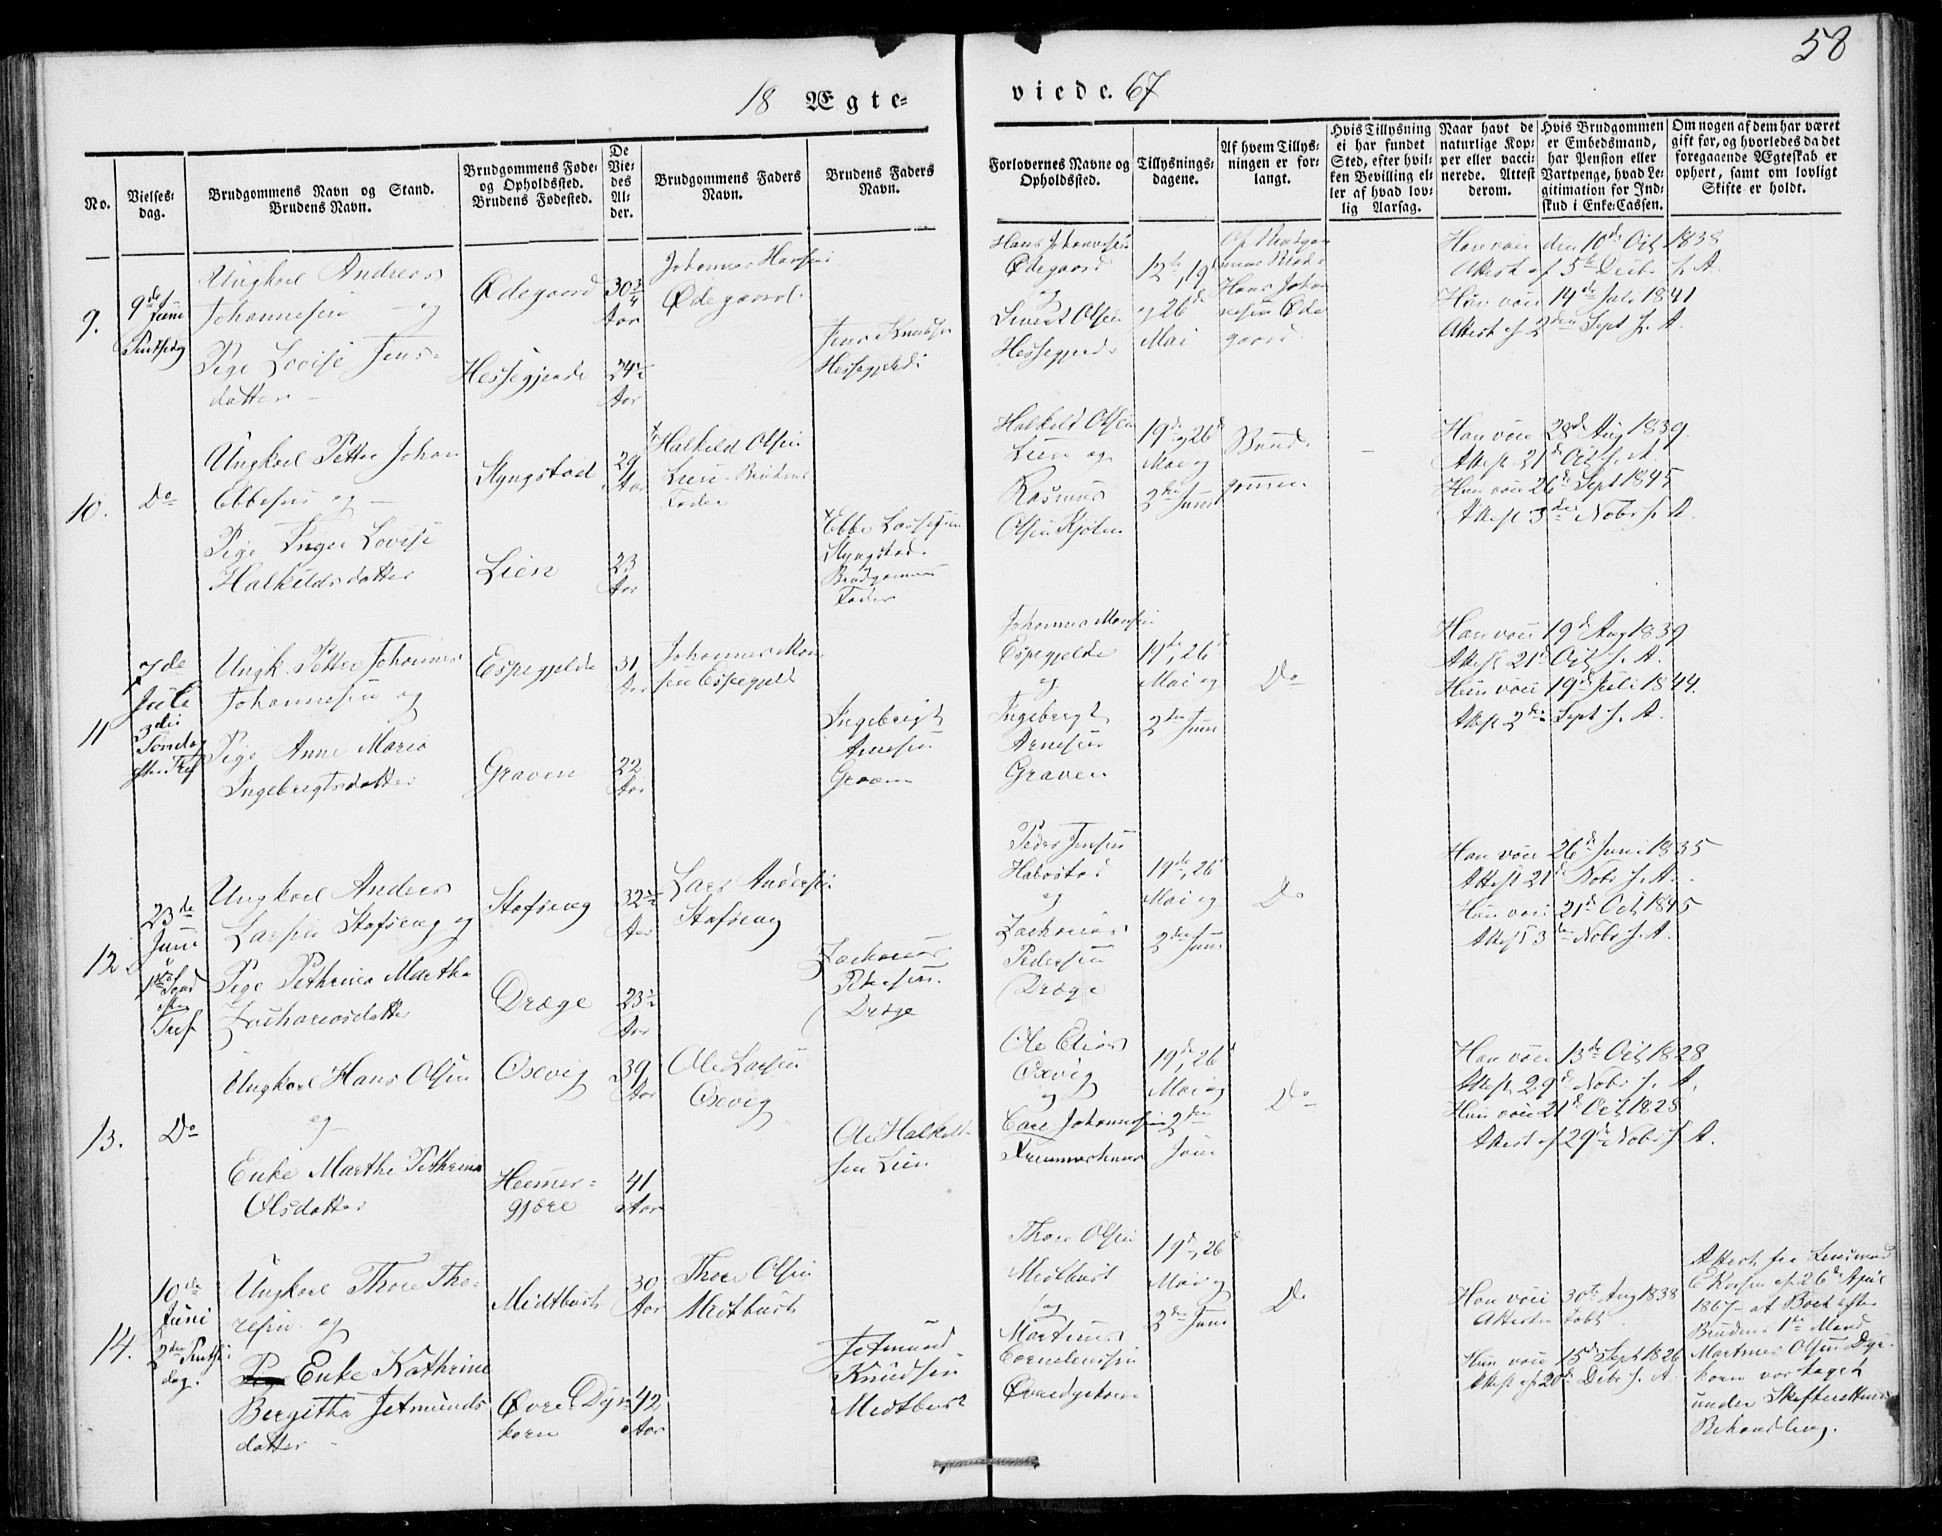 58
18 Ægte=
viede. 67
No.
Vielses-
dag.
Brudgommens Navn og Stand.
Brudens Navn.
Brudgommens Føde-
og Opholdssted.
Brudens Fødested.
De
Vie-
des
Al-
der.
Brudgommens Faders
Navn.
Brudens Faders
Navn.
Forlovernes Navne og
Opholdssted.
Tillysnings-
dagene.
Af hvem Tillys-
ningen er for-
langt.
Hvis Tillysning
ei har fundet
Sted, efter hvil-
ken Bevilling el-
ler af hvad lov-
lig Aarsag.
Naar havt de
naturlige Kop-
per eller vacci-
nerede. Attest
derom.
Hvis Brudgommen
er Embedsmand,
har Pension eller
Vartpenge, hvad Le-
gitimation for Ind-
skud i Enke-Cassen.
Om nogen af dem har været
gift før, og hvorledes da det
foregaaende Ægteskab er
ophørt, samt om lovligt
Skifte er holdt.
9.
9de Juni
Pintsedag
Ungkarl Andreas
Johannesen - og
Pige Lovise Jens-
datter -
Ødegaard
Hessegjerde
30 3/4
Aar
24 1/2
Aar
Johannes Hansen
Ødegaard.
Jens Knudsen
Hessegjerde
Hans Johannesen
Ødegaard
og
Sivert Olsen
Hessegjerde
12te, 19de
og 26de
Mai
Hans Johan
nesen Øde
gaard.
Han vacc den 10de Oct 1838
Attest af 5te Decbr s. A.
Hun vacc 14de Juli 1841
Attest af 2den Sept s. A.
10.
Do
Ungkarl Petter Johan
Ebbesen og -
Pige Inger Lovise
Halkildsdatter
Slyngstad
Lien
29
Aar
23
Aar
Halkild Olsen
Lien - Brudens
Fader
Ebbe
Slyngstad.
Brudgommens
Fader
Halkild Olsen
Lien og
Rasmus
Olsen Kjølen
19de, 26de
Mai og
2den Juni
Brud-
gommen
Han vacc 28de Aug 1839.
Attest 21de Oct s. A.
Hun vacc 26de Sept 1845
Attest 3die Nobr s. A.
11
7de
Juli
3die
Søndag
efter Tref
Ungk. Petter Johannes
Johannesen og
Pige Anne Maria
Ingebrigtsdatter
Espegjelde
Graven
31
Aar
22
Aar
Johannes Mon
sen Espegjelde
Ingebrigt
Arnesen
Graven
Johannes Monsen
Espegjelde
og
Ingebrigt
Arnesen
Graven
19de, 26de
Mai og
2den Juni
Do
Han vacc 19de Aug 1839
Attest 21de Oct s. A.
Hun vacc 19de Juli 1844.
Attest 2den Sept s. A.
12
23de
Juni
1ste Sønd
efter
Tref
Ungkarl Andreas
Larsen Stafseng og
Pige Pethrina Martha
Zachariasdatter
Stafseng
Drage
32 1/2
Aar
23 1/2
Aar
Lars Andersen
Stafseng
Zacharias
Petersen
Drage
Peder Jensen
Halestad
og
Zacharias
Pedersen
Drage
19de, 26de
Mai og
2den Juni
Do
Han vacc 26de Juni 1835
Attest 21de Nobr s. A.
Hun vacc 21de Oct 1845
Attest 3die Nobr s. A.
13.
Do
Ungkarl Hans Olsen
og -
Enke Marthe Pethrina
Olsdatter
Oxevig
Heimer=
gjære
39
Aar
41
Aar
Ole Larsen
Oxevig
Ole Halkild-
sen Lien
Ole Elias
Oxevig
og
Johannesen
19de, 26de
Mai og
2den
Juni
Do
Han vacc 13de Oct 1828
Attest 29de Nobr s. A.
Hun vacc 21de Oct 1828
Attest af 29de Nobr s. A.
14.
10de
Juni
2den Pintse-
dag.
Ungkarl Thore Tho-
resen og
Pige Enke Kathrine
Bergitha Jetmunds
datter -
Midtbust
Øvre Dyr-
korn
30
Aar
42
Aar
Thore Olsen
Midtbust
Jetmund
Knudsen
Midtbust
Thore Olsen
Midtbust
og
Martinus
Corneliussen
Øvredyrkorn
19de, 26de
Mai og
2den Juni
Do
Han vacc 30te Aug 1838
Attesten tabt.
Hun vacc 15de Sept 1826
Attest af 20de Debr s. A.
Attest fra Lensmand
af 26de April
1867 at Boet efter
Brudens 1ste Mand
Martinus Olsen Dyr-
korn var taget
under Skifterettens
Behandling.